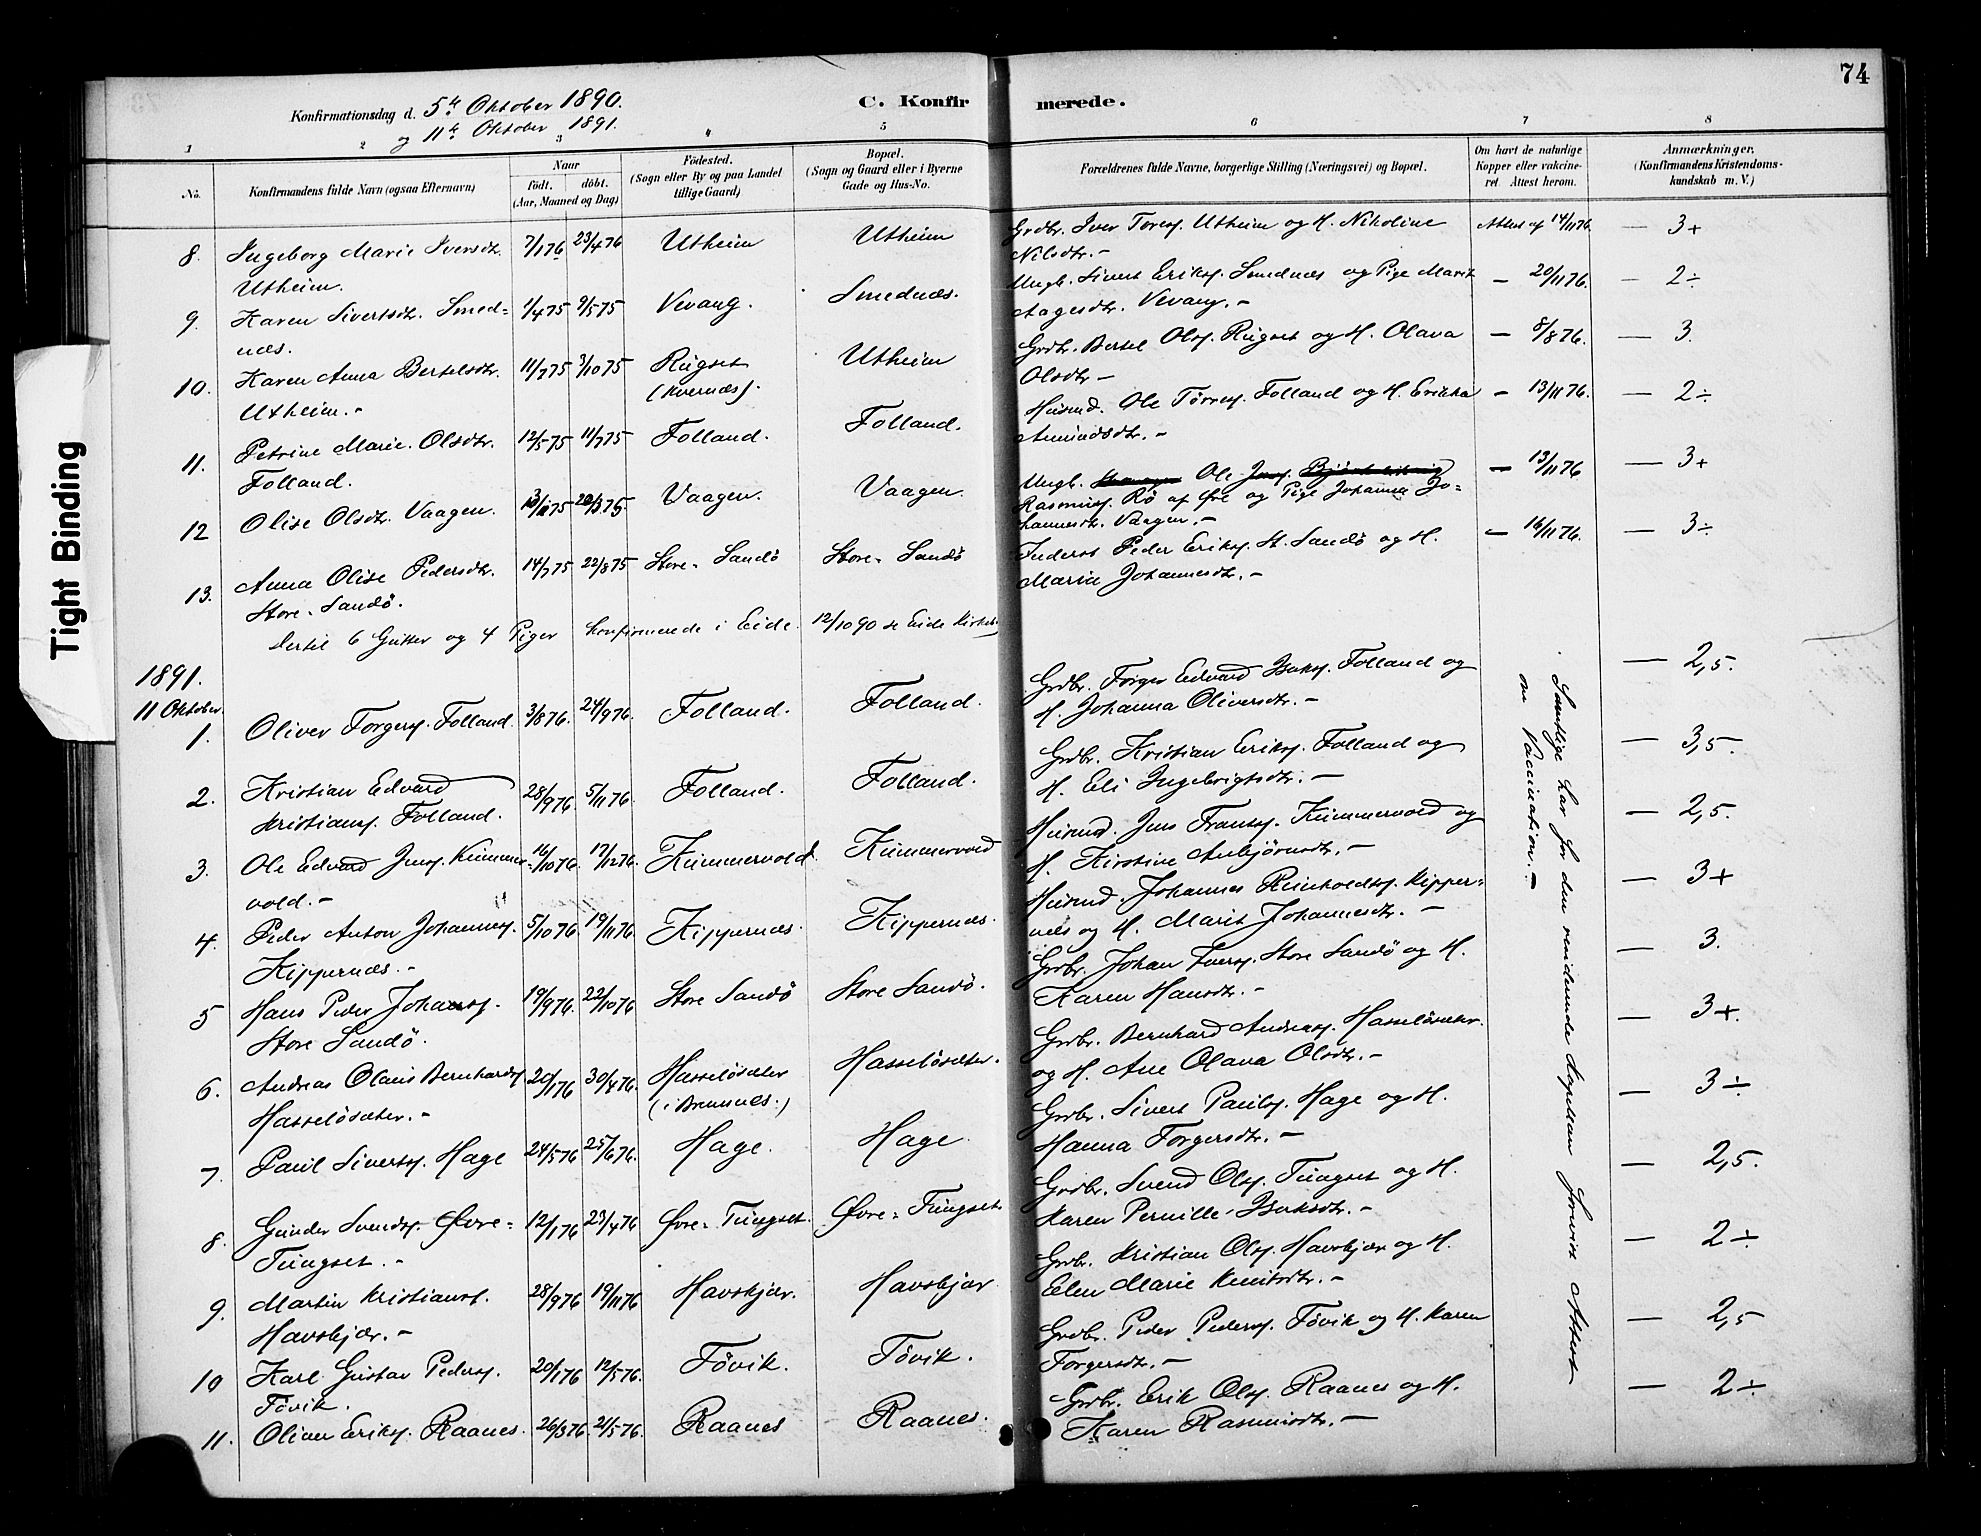 74
Konfirmationsdag d. 5te Oktober 1890.
og 11te Oktober 1891.
C. Konfirmerede.
1 2 3 4 5 6 7 8
No.
Konfirmandens fulde Navn (ogsaa Efternavn)
Naar
födt. döbt.
(Aar, Maaned og Dag)
Födested.
(Sogn eller By og paa Landet
tillige Gaard)
Bopæl.
(Sogn og Gaard eller i Byerne
Gade og Hus-No.
Forældrenes fulde Navne, borgerlige Stilling (Næringsvei) og Bopæl.
Om havt de naturlige
Kopper eller vakcine-
ret. Attest herom.
Anmærkninger.
(Konfirmandens Kristendoms-
kundskab m. V.)
8. Ingeborg Marie Iversdtr. 7/1 76 23/4 76 Utheim Utheim Grdbr. Iver Toresf. Utheim og H. Nikoline Attest af 14/11 76. — 3+
Utheim. Nilsdtr. —
9. Karen Sivertsdtr. Smed= 1/4 75 9/5 75 Vevang. Smednæs. Ungk. Sivert Eriksf. Smednæs og Pige Marit — 20/11 76. — 2÷
næs. Aagesdtr. Vevang. —
10. Karen Anna Bertelsdtr. 11/7 75 3/10 75 Rugset Utheim Grdbr. Bertel Olsf. Rugset og H. Olava — 8/8 76. — 3.
Utheim. — (Kvernæs). Olsdtr —
11. Petrine Marie Olsdtr. 12/5 75 11/7 75 Folland. Folland. Husmd. Ole Törresf. Folland og H. Erikka — 13/11 76. — 2÷
Folland. Amundsdtr. —
12 Olise Olsdtr. Vaagen. 75 28/3 75. Vaagen. Vaagen. Ungk. Ole — 13/11 76 — 3+
Rasmusf. Rö af Öre og Pige Johanna Jo=
hannesdtr. Vaagen. —
13. Anna Olise Pedersdtr. 14/7 75 22/8 75 Store-Sandö Store-Sandö Inderst Peder Eriksf. St. Sandö og H. — 16/11 76. — 3÷
Store-Sandö. Maria Johannesdtr. —
dertil 6 Gutter og 4 Piger konfirmerede i Eide 12/10 90 se Eide Kirkeb.
1891.
11 Oktober.
1. Oliver Torgersf. Folland. 3/8 76. 24/9 76. Folland. Folland. Grdbr. Torger Edvard Isaksf. Folland og — 2,5.
H. Johanna Oliversdtr. —
2. Kristian Edvard 28/9 76. 5/11 76. Folland. Folland. Grdbr. Kristian Eriksf. Folland og — 3,5.
Kristiansf. Folland. H. Eli Ingebrigtsdtr. —
3. Ole Edvard Jensf. Kummer= 16/10 76. 17/12 76. Kummervold Kummervold Husmd. Jens Fransf. Kummervold og — 2,5.
vold. — H. Kirstine Anbjörnsdtr. —
4. Peder Anton Johannesf. 5/10 76. 19/11 76. Kippernæs. Kippernæs. Husmd. Johannes Reinholdtsf. Kipper= — 3+
Kippernæs. — næs og H. Marit Johannesdtr. —
5 Hans Peder Johansf. 19/9 76. 22/10 76 Store Sandö Store Sandö. Grdbr. Johan Iversf. Store Sandö og H. — 3.
Store Sandö. Karen Hansdtr. —
6. Andreas Olaus Bernhardsf. 20/1 76 30/4 76. Hasselösæter Hasselösæter. Grdbr. Bernhard Andreasf. Hasselösæter — 3+.
Hasselösæter. — (i Bremnes.) og H. Ane Olava Olsdtr. —
7. Paul Sivertsf. Hage 24/5 76 25/6 76. Hage. Hage. Grdbr. Sivert Paulsf. Hage og H. — 3÷
Hanna Torgersdtr. —
8. Gunder Svendsf. Övre= 12/1 76 23/4 76 Övre-Tungset. Övre-Tungset Grdbr. Svend Olsf. Tungset og H. — 2,5.
Tungset. — Karen Pernille Isaksdtr. —
9. Martin Kristiansf. 28/9 76 19/11 76 Havskjær. Havskjær Grdbr. Kristian Olsf. Havskjær og H. — 2÷.
Havskjær. — Elen Marie Knutsdtr. —
10 Karl Gustav Pedersf. 20/1 76 12/5 76. Tövik. Tövik. Grdbr. Peder Pedersf. Tövik og H. Karen — 2,5
Tövik. Torgersdtr. —
11. Oliver Eriksf. Raanes. 26/3 76. 21/5 76. Raanes Raanes. Grdbr. Erik Olsf. Raanes og H. — 2÷
Karen Rasmusdtr. —
Samtlige har for den residerende Kapellan forevist Attest
om Vaccination. —
Tight Binding